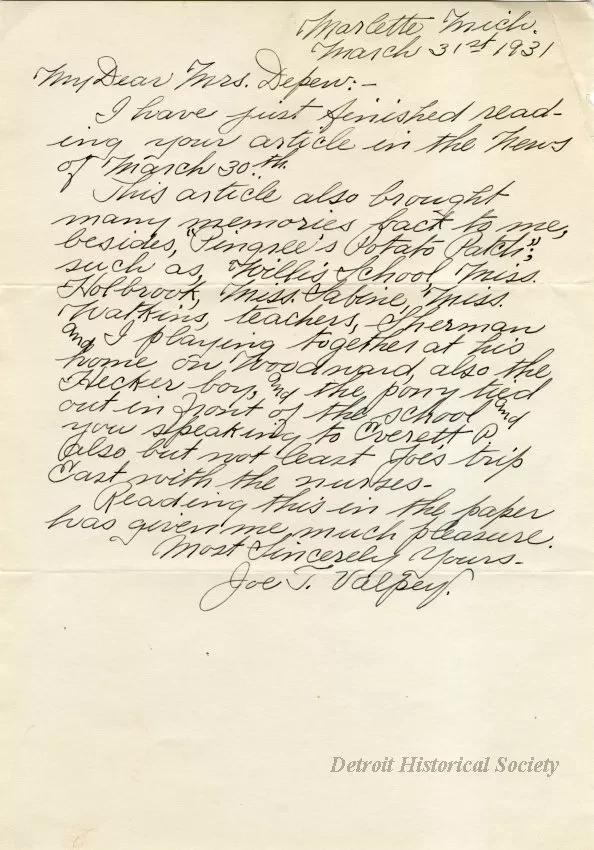 Marlette Mich.
March 31st 1931
My Dear Mrs. Depew:-
I have just finished read-
ing your article in the News
of March 30th.
This article also brought
many memories back to me,
besides, "Pingree's Potato Patch";
such as, Willis School, Miss.
Holbrook, Miss. Sabine, Miss.
Watkins, teachers, Sherman
and I playing together at his
home on Woodward, also the
Hecker boy, and the pony tied
out in front of the school and
you speaking to Everett P.
Also but not least Joe's trip
East with the nurses-
Reading this in the paper
has given me much pleasure.
Most Sincerely Yours-
Joe T. Valpey.
Detroit Historical Society